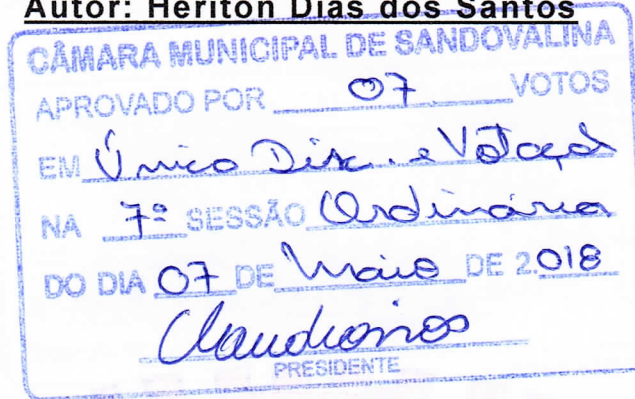 Autor: Heriton Dias dos Santos
CÂMARA MUNICIPAL DE SANDOVALINA
APROVADO POR 07 VOTOS
EM Única Disc. e Votação
NA 7ª SESSÃO Ordinária
DO DIA 07 DE Maio DE 2.018
PRESIDENTE